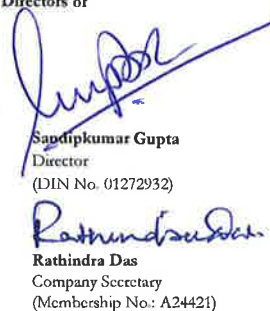 Directors of
Sandipkumar Gupta
Director
(DIN No. 01272932)
Rathindra Das
Rathindra Das
Company Secretary
(Membership No.: A24421)